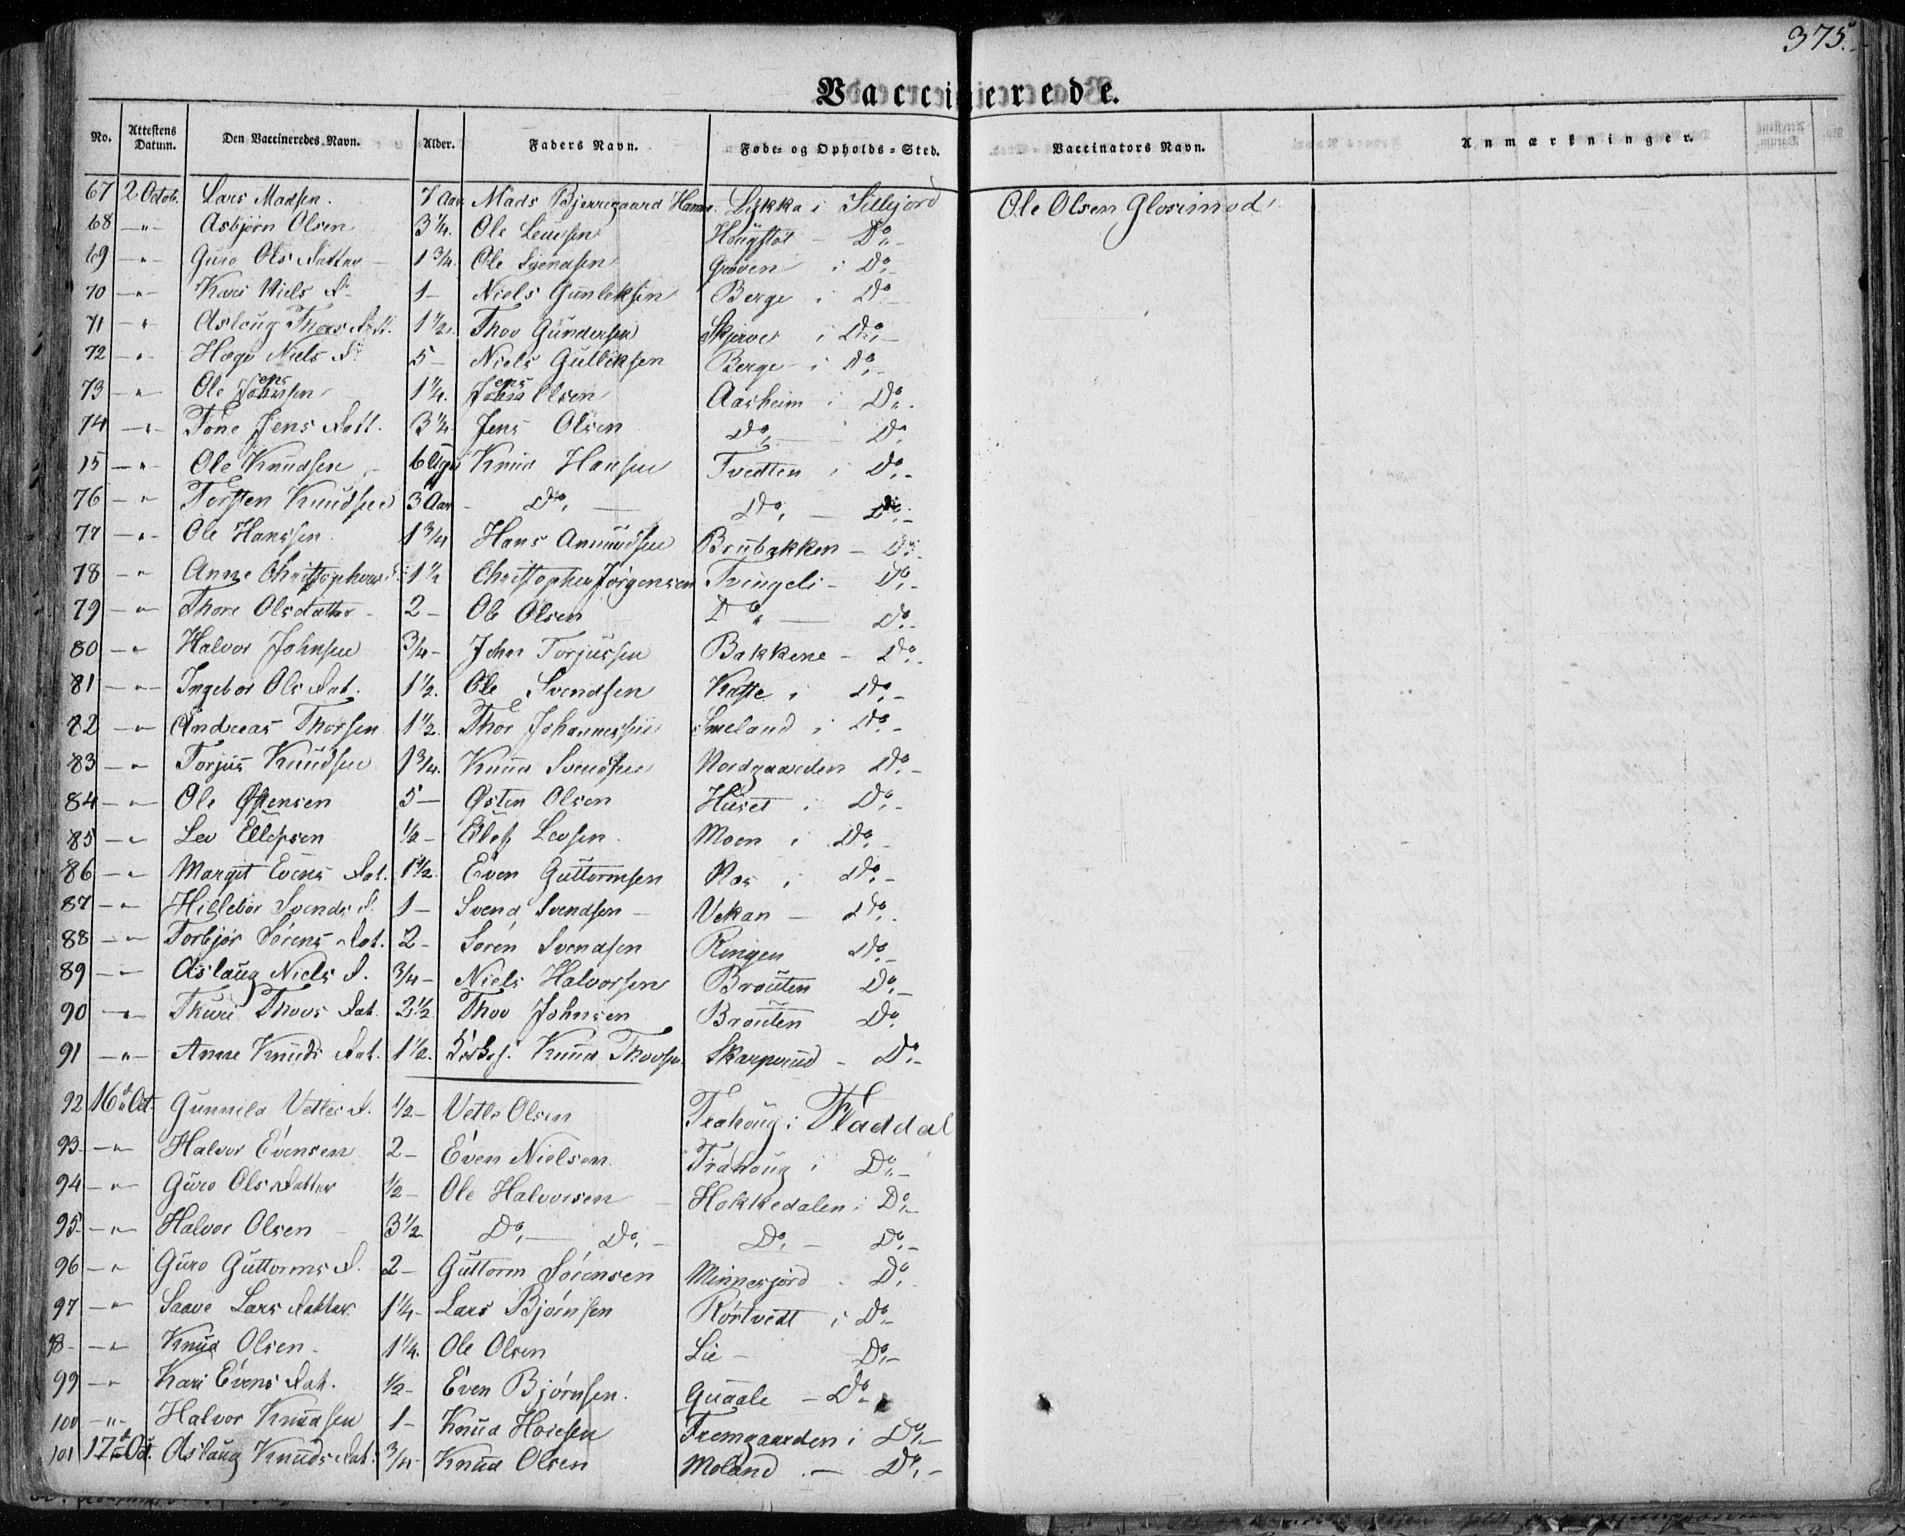 375.
Vaccinerede.
No. Attestens Datum. Den Vaccineredes Navn. Alder. Faders Navn. Føde- og Opholds-Sted. Vaccinators Navn. Anmærkninger.
67 2 Octob. Lars Madsen. 7 Aar Mads Bjerregaard Lykka i Silljord Ole Olsen Glosimod
68 — " — Asbjørn Olsen 3¼. Ole Leufsen Høugstøl — Do. —
69 — " Guro Ols Datter — 1¾. Ole Svendsen Grøven i Do. —
70 — " — Kari Niels D. 1 — Niels Gunleksen Berge i Do
71 — " Aslaug Thovs Datt. 1½. Thov Gundersen Skjervet i Do. —
72 — " . Hæge Niels D. 5 — Niels Gulleksen Berge i Do. —
73 — " Ole Jensen 1¼. Jens Olsen Aasheim i Do. .
74 — " Tone Jens Datt. 3¼ Jens Olsen Do. — Do.
15 — " Ole Knudsen 6 Uger Knud Hansen Tvedten i Do. —
76 — " Torsten Knudsen 3 Aar — Do. — Do. — Do. —
77 — " Ole Hanssen 1¾ Hans Amundsen Brubakken — Do.
78 — " Anne Christophers D. 1½ Christopher Jørgensen Tveingeli — Do. —
79 — " Thore Ols Datter — 2 — Ole Olsen Do " — Do. —
80 — " Halvor Johnsen ¾ — John Torjussen Bakkene — Do. .
81 — " — Ingebor Ols Dat. 1½. Ole Svendsen Kaase i Do. —
82 — " Andreas Thorsen 1½. Thor Johannessen Smeland i Do. —
83 — " Torjus Knudsen 1¾. Knud Svendsen Nordgaarden Do. —
84 — " — Ole Østensen 5 — Østen Olsen Huset i Do. —
85 — " Lev Ellefsen ½ — Ellef Levsen. Moen i Do. —
86 — " Margit Evens Dat. 1½. Even Guttormsen Næs i Do. —
87 — " Hillebør Svends D. 1 — Svend Svendsen — Vekan — Do. .
88 — " Torbjør Sørens Dat. 2 — Søren Svendsen Ringen Do. —
89 — " Aslaug Niels D. ¾ — Niels Halvorsen Brouten Do. —
90 — " Thuri Thovs Dat. 2½ Thov Johnsen Brouten Do.
91 — " — Anne Knuds Dat. 1½. Knud Thovsen Skarperud — Do. —
92 16d Oct. Gunnild Vetles D. ½ — Vetle Olsen Trahoug i Fladdal
93. — " — Halvor Evensen 2 — Even Nielsen Trahoug i Do. —
94 — " — Guro Ols Datter ½ — Ole Halvorsen — Hokkedalen i Do. —
95 — " Halvor Olsen 3½ Do. — Do. — Do. — Do. —
96 — " Guro Guttorms D. 2 — Guttorm Sørensen Minnesjord . Do. .
97 — " Saave Lars Datter 1¼ — Lars Bjørnsen Rørtvedt i Do —
98 — " — Knud Olsen — 1¼. Ole Olsen Lie — Do. —
99 — " Kari Evens Dat. ½ — Even Bjørnsen. Guaale — Do. —
100 — " — Halvor Knudsen 1 — Knud Fremgaarden i Do. —
101 17d Oct. Aslaug Knuds Dat. ¾ — Knud Olsen Moland . — Do. —